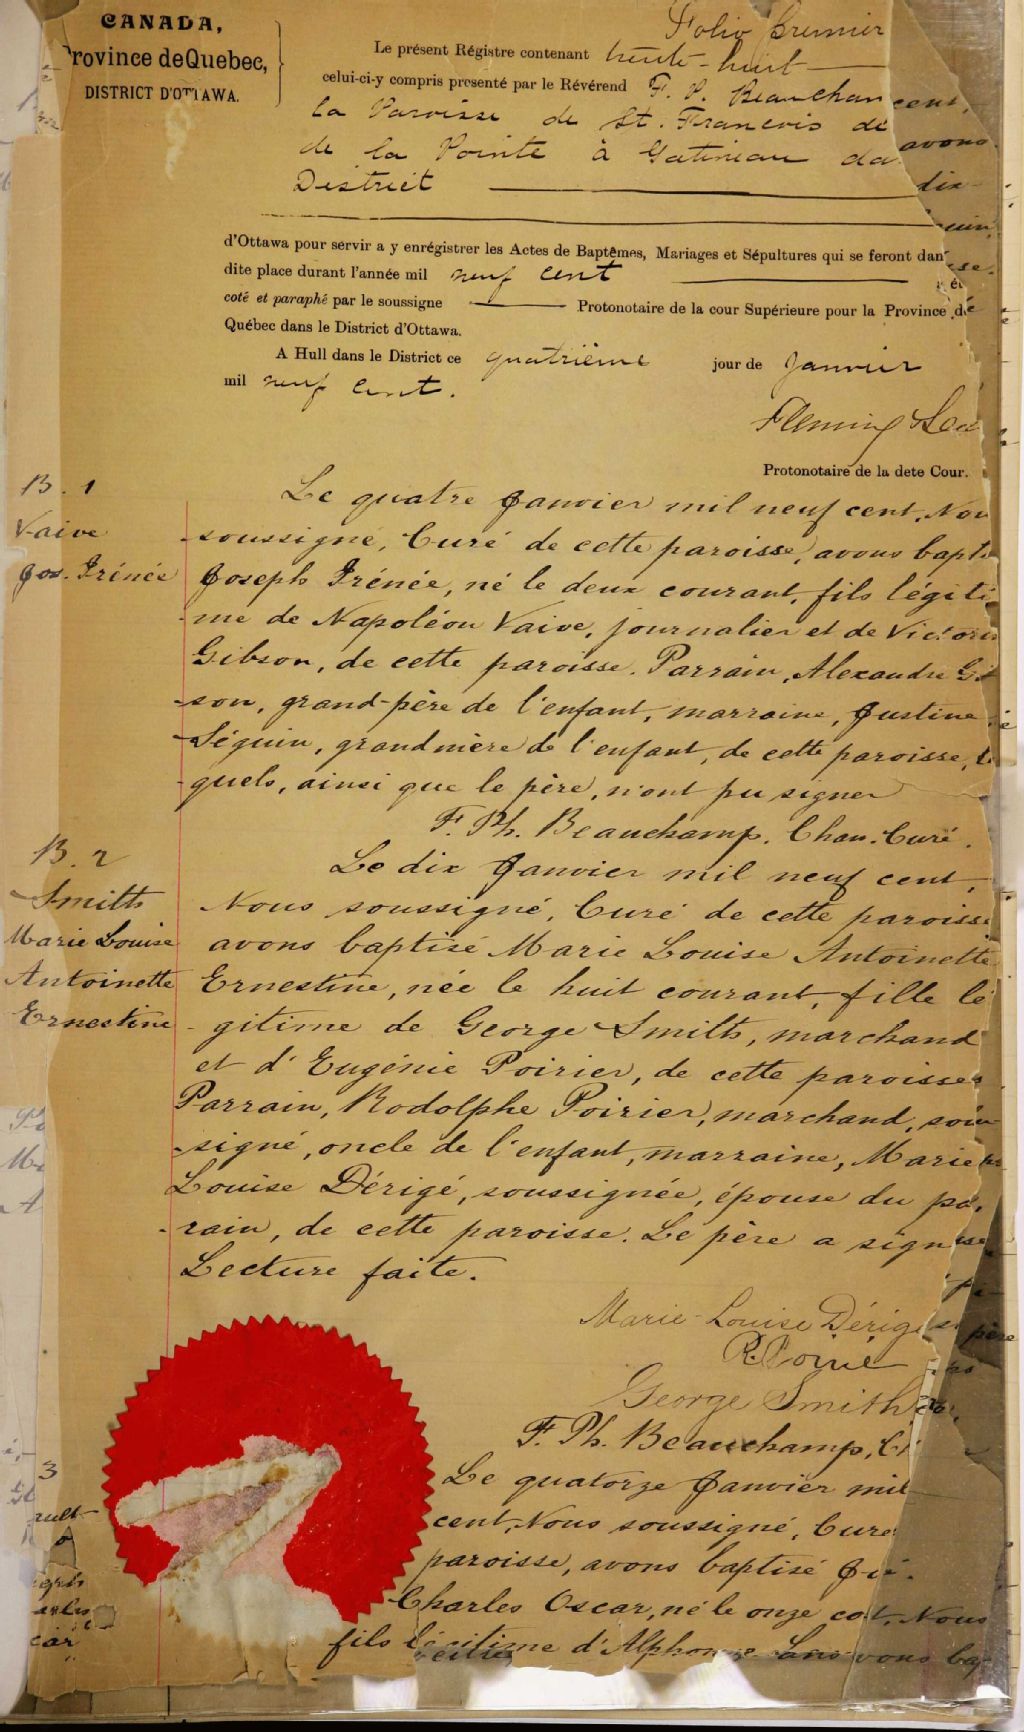 CANADA,
Province de Quebec,
DISTRICT D'OTTAWA.
Folio Premier
Le présent Régistre contenant trente-huit
celui-ci-y compris presenté par le Révérend F. P. Beaucham
la Paroisse de St. François de
de la Pointe à Gatineau da
District
d'Ottawa pour servir a y enrégistrer les Actes de Baptêmes, Mariages et Sépultures qui se feront dan
dite place durant l'année mil neuf cent
coté et paraphé par le soussigne Protonotaire de la cour Supérieure pour la Province de
Québec dans le District d'Ottawa.
A Hull dans le District ce quatrième jour de Janvier
mil neuf cent.
Fleming
Protonotaire de la dete Cour.
B. 1
Vaive
Jos. Irénée
Le quatre Janvier mil neuf cent, Nou
soussigné, Curé de cette paroisse, avons bapti
Joseph Irénée, né le deux courant, fils légiti
-me de Napoléon Vaive, journalier et de Victori
Gibson, de cette paroisse. Parrain, Alexandre Gib
-son, grand-père de l'enfant, marraine, Justine
Séguin, grandmère de l'enfant, de cette paroisse, les
-quels, ainsi que le père, n'ont pu signer
F. Ph. Beauchamp. Chan. Curé.
B. 2
Smith
Marie Louise
Antoinette
Ernestine
Le dix Janvier mil neuf cent,
Nous soussigné, Curé de cette paroisse
avons baptisé Marie Louise Antoinette
Ernestine, née le huit courant, fille lé
-gitime de George Smith, marchand
et d'Eugénie Poirier, de cette paroisse
Parrain, Rodolphe Poirier, marchand, sous
-signé, oncle de l'enfant, marraine, Marie
Louise Dérigé, soussignée, épouse du par
-rain, de cette paroisse. Le père a sign
Lecture faite.
Marie-Louise Dérigé
R. Poirié
George Smith
F. Ph. Beauchamp, C
3
Le quatorze Janvier mil
cent, Nous soussigné, Curé
paroisse, avons baptisé
Charles Oscar, né le onze cot, Nous
fils légitime d'Alphonse vons bap